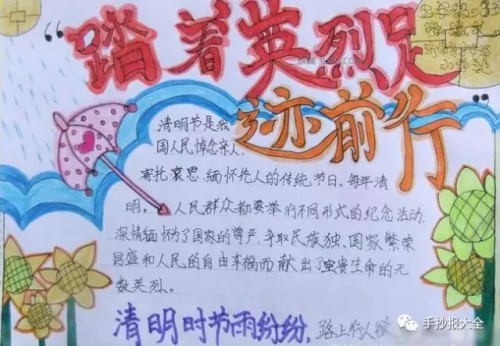 “踏着英烈足
迹前行”
清明节是我
国人民悼念亲人、
寄托哀思、缅怀先人的传统节日。每年清
明。人民群众都要举行不同形式的纪念活动.
深情缅怀为了国家的尊严、争取民族独、国家繁荣
昌盛和人民的自由幸福而献出了宝贵生命的无
数英烈。
清明时节雨纷纷,路上行人欲
手抄报大全